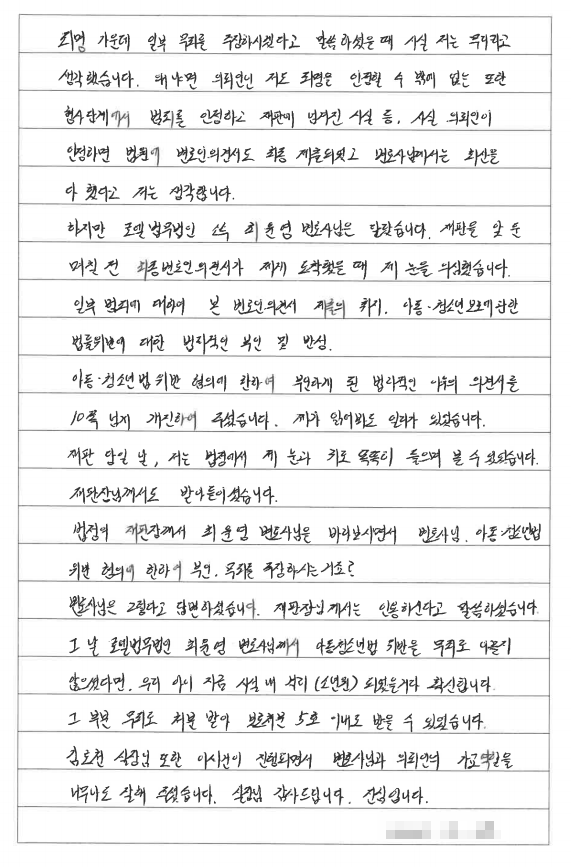 죄명 가운데 일부 무죄를 주장하시겠다고 말씀하셨을 때 사실 저는 무리라고
생각했습니다. 왜냐면 의뢰인인 저도 죄명은 인정할 수 밖에 없는 또한
협사단계에서 범죄를 인정하고 재판에 넘겨진 사실 등, 사실 의뢰인이
인정하면 법원에 변호인의견서도 최종 제출되었고 변호사님께서는 최선을
다 했다고 저는 생각합니다.
하지만 로엘법무법인 소속 최윤영 변호사님은 달랐습니다. 재판을 앞 둔
며칠 전 최종변호인의견서가 제게 도착했을 때 제 눈을 의심했습니다.
일부 범죄에 대하여 본 변호인의견서 제출의 취지, 아동·청소년보호에관한
법률위반에 대한 법리적인 부인 및 반성.
아동·청소년법위반 혐의에 한하여 부인하게 된 법리적인 이유의 의견서를
10쪽 넘게 개진하여 주셨습니다. 제가 읽어봐도 일리가 있었습니다.
재판 당일 날, 저는 법정에서 제 눈과 귀로 똑똑이 들으며 볼 수 있었습니다.
재판장님께서도 받아들이셨습니다.
법정의 재판장께서 최윤영 변호사님을 바라보시면서 변호사님. 아동·청소년법
위반 혐의에 한하여 부인, 무죄를 주장하시는거죠?
변호사님은 그렇다고 답변하셨습니다. 재판장님께서는 인용하신다고 말씀하셨습니다
그 날 로엘법무법인 최윤영 변호사님께서 아동청소년법 위반을 무죄로 다투지
않으셨다면, 우리 아이 지금 시설 내 처리 (소년원) 되었을거다 확신합니다.
그 부분 무죄로 처분 받아 보호처분 5호 이내로 받을 수 있었습니다.
김호현 실장님 또한 이사건이 진행되면서 변호사님과 의뢰인의 가교역할을
너무나도 잘해 주셨습니다. 실장님 감사드립니다. 진심입니다.